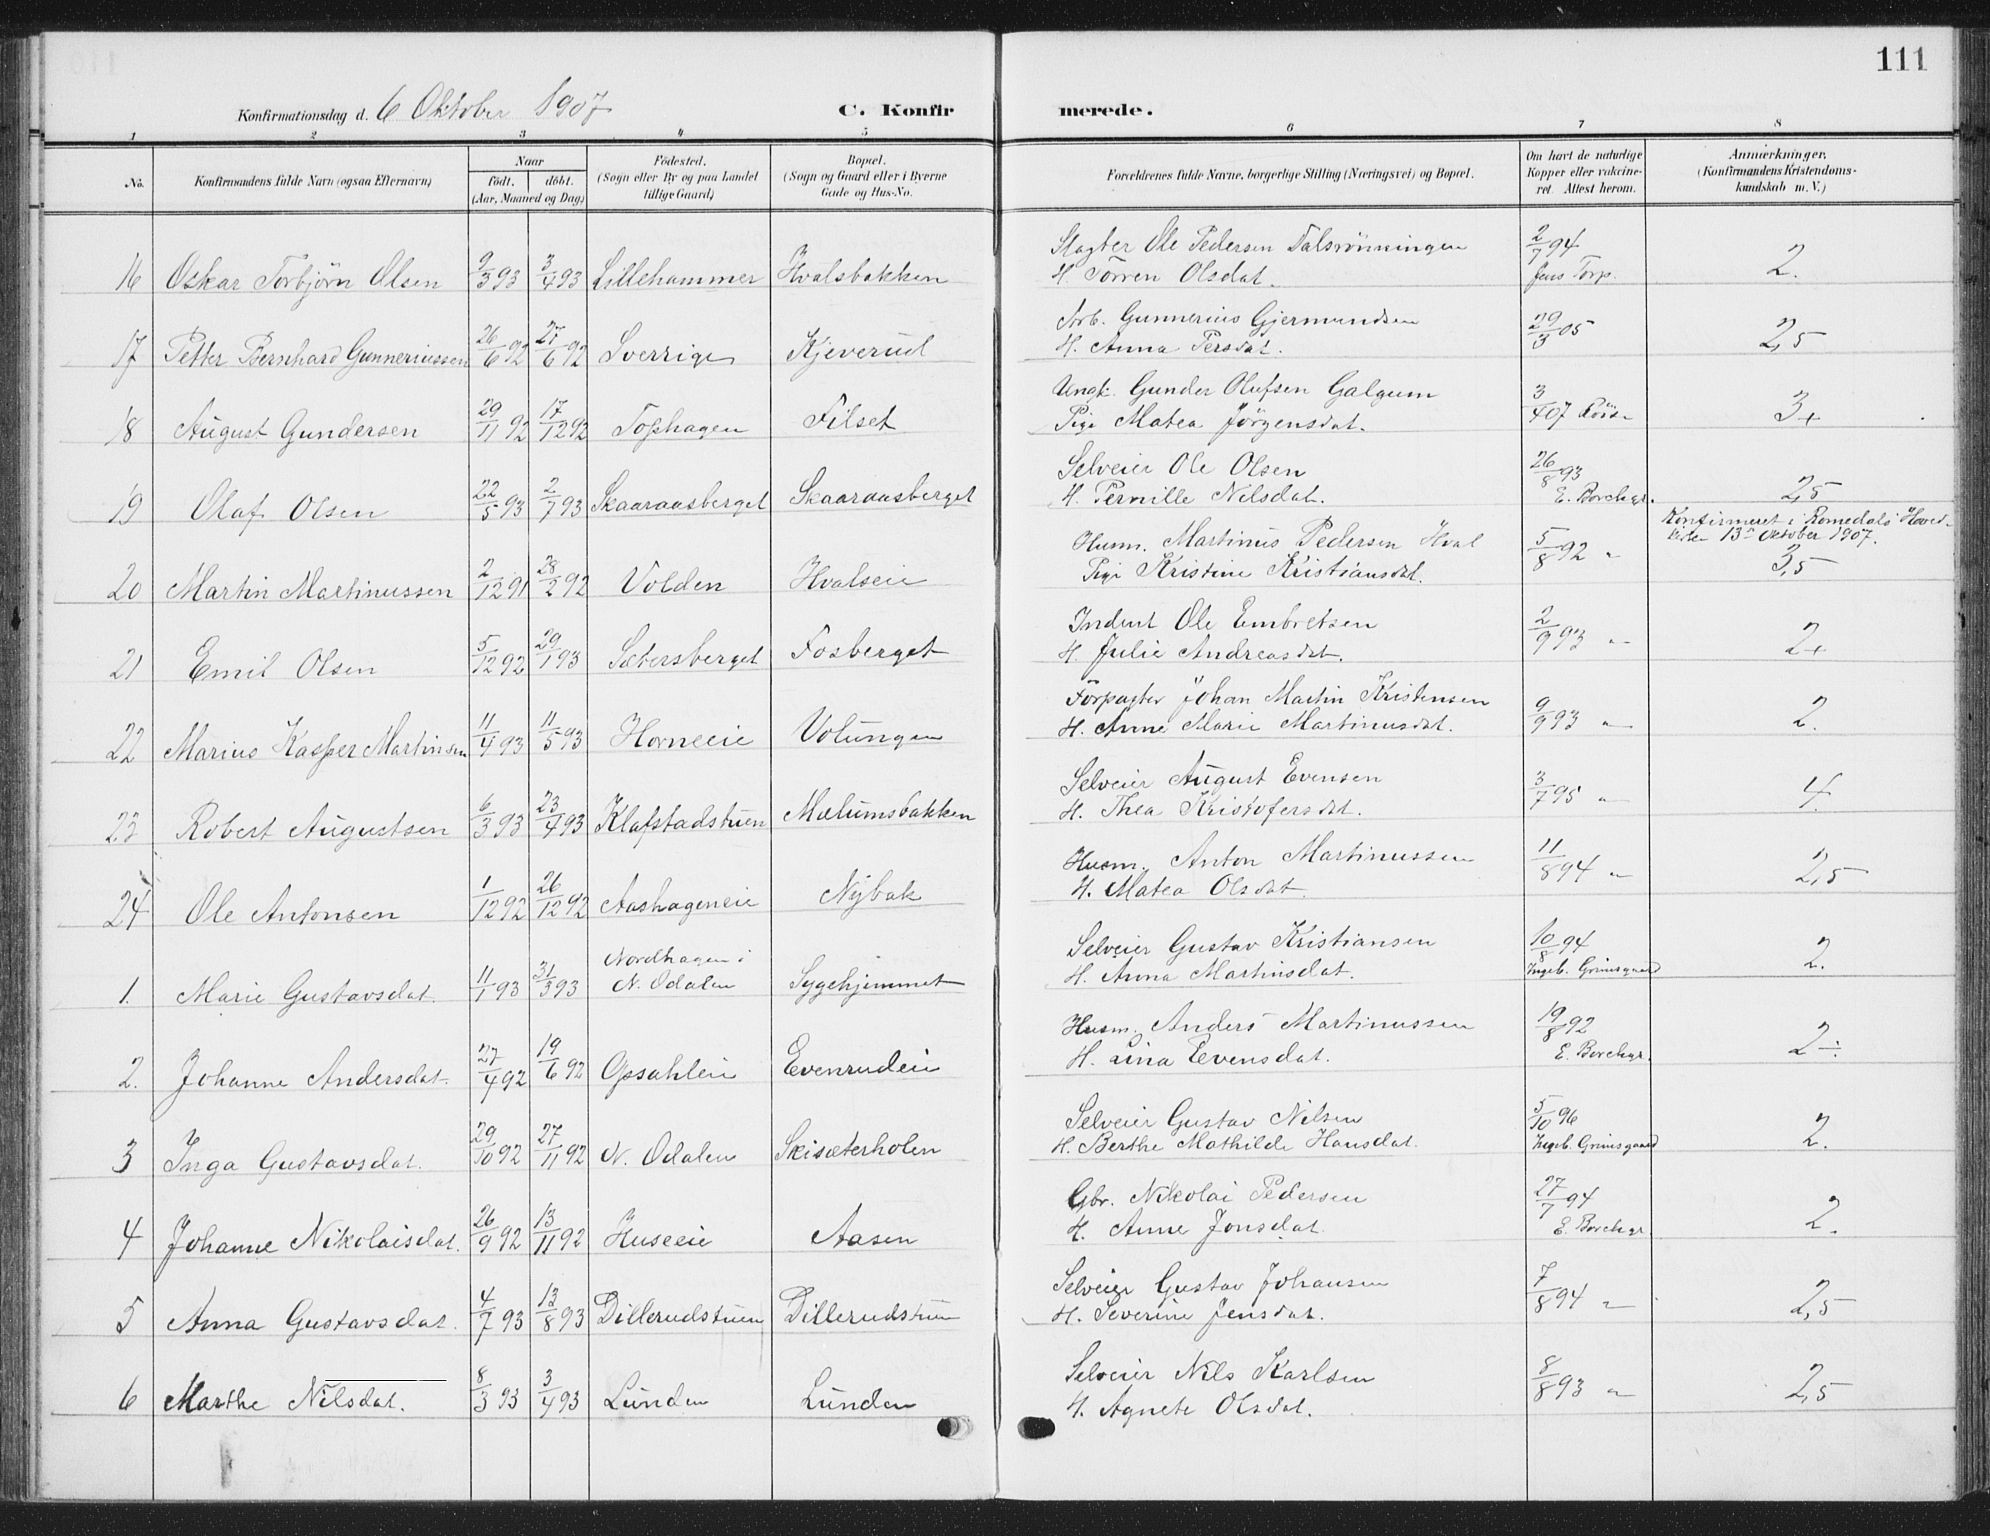 111
Konfirmationsdag d. 6 Oktober 1907
C. Konfirmerede.
1 2 3 4 5 6 7 8
No.
Konfirmandens fulde Navn (ogsaa Efternavn)
Naar
født. døbt.
(Aar, Maaned og Dag)
Fødested.
(Sogn eller By og paa Landet
tillige Gaard)
Bopæl.
(Sogn og Gaard eller i Byerne
Gade og Hus-No.
Forældrenes fulde Navne, borgerlige Stilling (Næringsvei) og Bopæl.
Om havt de naturlige
Kopper eller vakcine-
ret. Attest herom.
Anmærkninger.
(Konfirmandens Kristendoms-
kundskab m. V.)
16 Oskar Torbjørn Olsen 9/3 93 3/4 93 Lillehammer Hvalsbakken
Slagter Ole Pedersen Dalsrönningen 2/7 94
H. Torren Olsdat. Jens Torp. 2.
17 Petter Bernhard Gunneriussen 26/6 92 27/6 92 Sverrige Kjeverud
Arb. Gunnerius Gjermundsen 29/3 05
H. Anna Persdat. 2,5
18 August Gundersen 29/11 92 17/12 92 Tophagen Filset
Ungk. Gunder Olufsen Galgum 3/4 07
Pige Matea Jörgensdat. 3+
19 Olaf Olsen 22/5 93 2/7 93 Skaaraasberget Skaaraasberget
Selveier Ole Olsen 26/8 93
H. Pernille Nilsdat. E. Borchgr. 2,5
20 Martin Martinussen 2/12 91 28/2 92 Volden Hvalseie
Husm. Martinus Pedersen Hval 5/8 92 "
Pige Kristine Kristiansdat.
Konfirmeret i Romedals Hoved-
kirke 13de Oktober 1907.
3,5
21 Emil Olsen 5/12 92 29/1 93 Sætersberget Fosberget
Inderst Ole Embretsen 2/9 93 "
H. Julie Andreasdat. 2+
22 Marius Kasper Martinsen 11/4 93 11/5 93 Horneeie Volungen
Forpagter Johan Martin Kristensen 9/9 93 "
H. Anne Marie Martinusdat. 2.
23 Robert Augustsen 6/3 93 23/4 93 Klafstadstuen Mælumsbakken
Selveier August Evensen 3/7 95 "
H. Thea Kristofersdat. 4.
24 Ole Antonsen 1/12 92 26/12 92 Aashageneie Nybak
Husm. Anton Martinussen 11/8 94 "
H. Matea Olsdat. 2,5
1. Marie Gustavsdat. 11/1 93 31/3 93 Nordhagen i
N. Odalen Sygehjemmet
Selveier Gustav Kristiansen 10/8 94
H. Anna Martinsdat. Ingeb. Grinsgaard 2.
2. Johanne Andersdat. 27/4 92 19/6 92 Opsahleie Evenrudeie
Husm. Anders Martinussen 19/8 92
H. Lina Evensdat. E. Borchgr. 2÷
3 Inga Gustavsdat. 29/10 92 27/11 92 N. Odalen Skisæterholen
Selveier Gustav Nilsen 5/10 96
H. Berthe Mathilde Hansdat. Ingeb. Grinsgaard 2.
4 Johanne Nikolaisdat. 26/9 92 13/11 92 Huseeie Aasen
Gbr. Nikolai Pedersen 27/7 94
H. Anne Jonsdat. E. Borchgr. 2.
5 Anna Gustavsdat. 4/7 93 13/8 93 Dillerudstuen Dillerudstuen
Selveier Gustav Johansen 7/8 94 "
H. Severine Jensdat. 2,5
6 Marthe Nilsdat. 8/3 93 3/4 93 Lunden Lunden
Selveier Nils Karlsen 8/8 93 "
H. Agnete Olsdat. 2,5